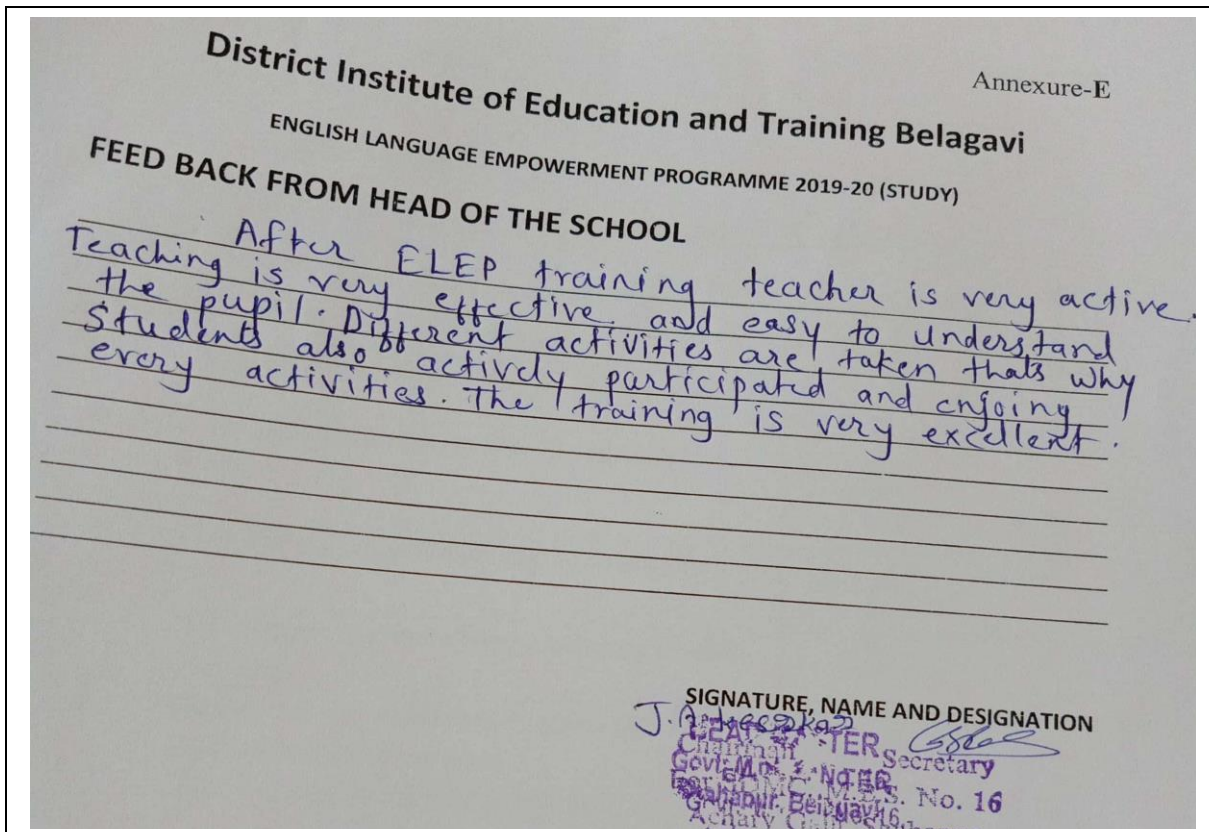 Annexure-E
District Institute of Education and Training Belagavi
ENGLISH LANGUAGE EMPOWERMENT PROGRAMME 2019-20 (STUDY)
FEED BACK FROM HEAD OF THE SCHOOL
After ELEP training teacher is very active.
Teaching is very effective and easy to understand
the pupil. Different activities are taken thats why
Students also actively participated and enjoing
every activities. The training is very excellent.
SIGNATURE, NAME AND DESIGNATION
Chairman Secretary
No. 16